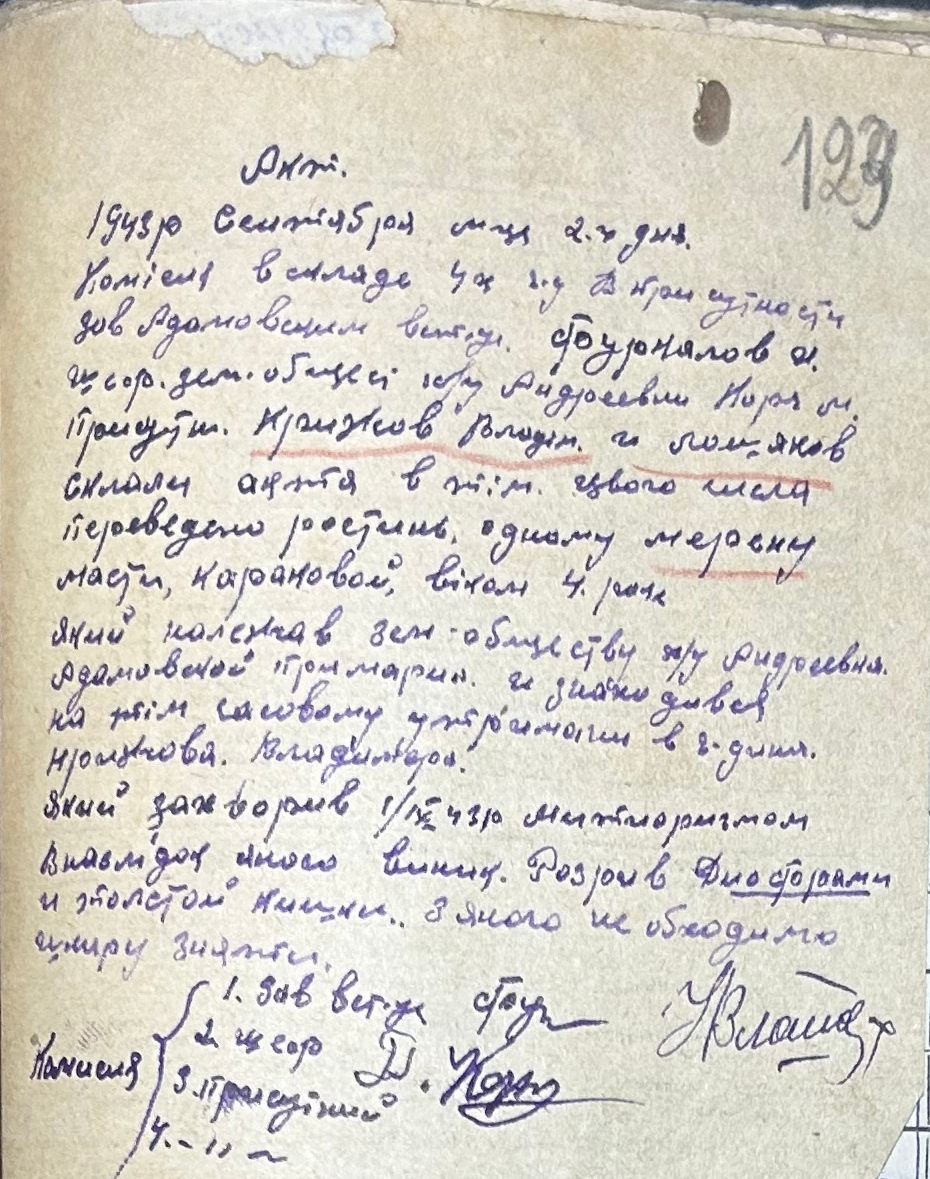 123
Акт.
1943р Сентября мця 2.го дня.
Комісия в складе 4х в присутности
зав Адамовским вет. Фурналов и.
зем. общест Андреевки Корж м.
Присутн. Крижков Владім. и
склали акт в тім. цього числа
переведено ростинь. одному мерену
масти, Карановой, віком 4. рок
який належав зем. обществу х/у Андреевка.
Адамовской Примарии. и знаходився
на тім часовому утримании в г-дина.
Крижкова. Владимера.
який захворив 1/IX 43р
Внаслідок якого виник. Розрив Диофрагми
и толстой кишки.. З якого не обходимо
шкиру зняти.
Комисия
1. Зав вет.
2.
3. Присутний
4. - 〃 -